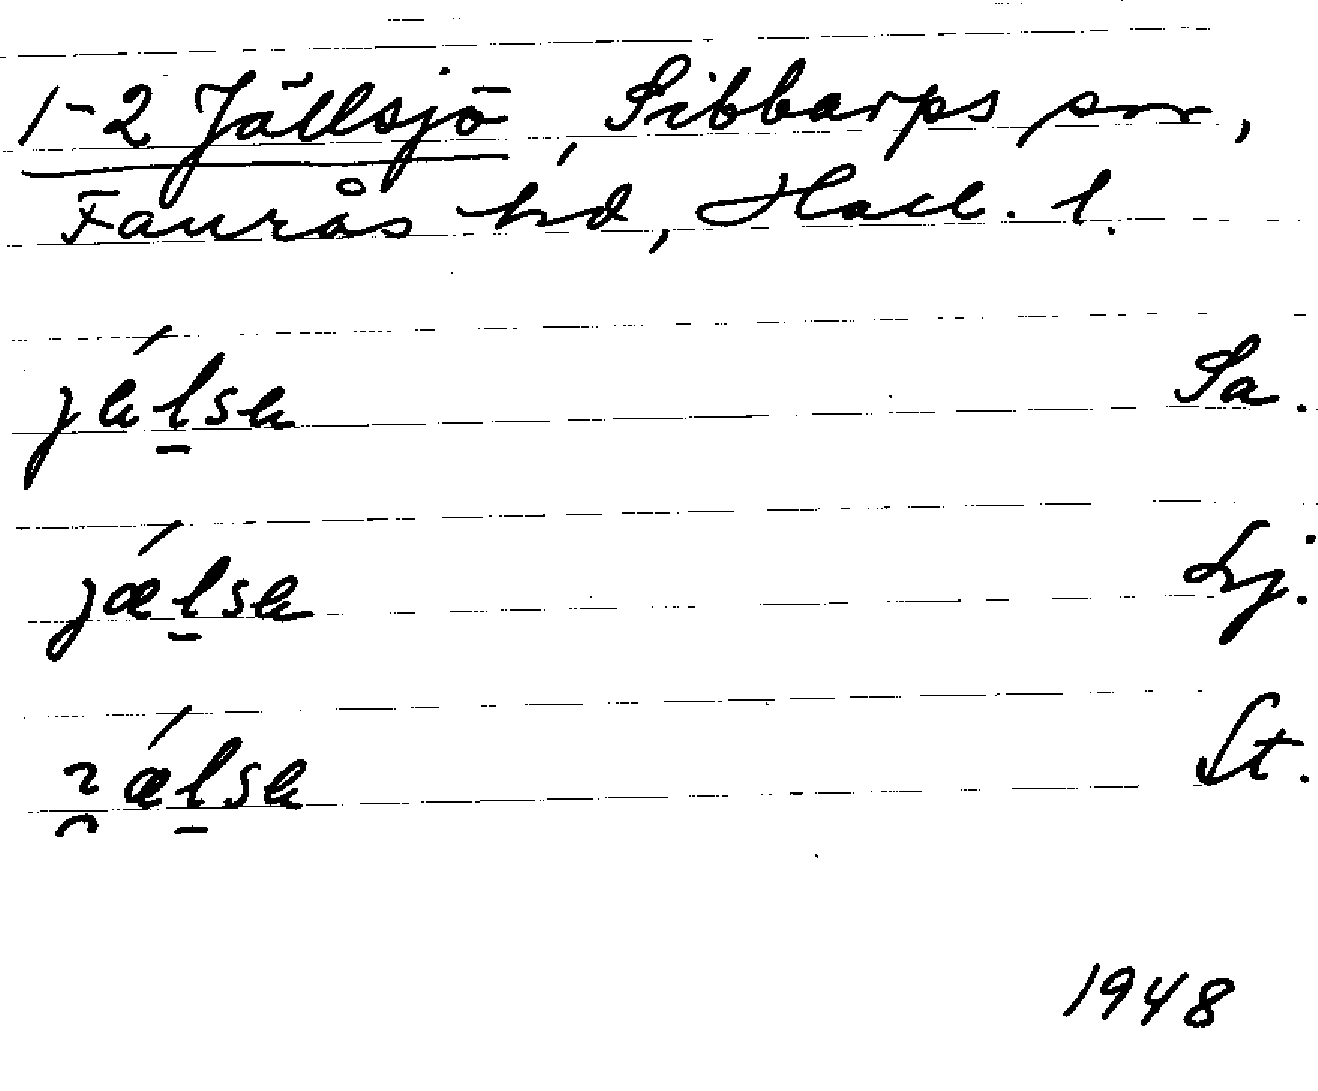 1-2 Jällsjö, Sibbarps sn,
Faurås hd, Hall. l.
jä́l̠sa Sa.
jǽl̠sa Lj.
ɿ̯ǽl̠sa St.
1948